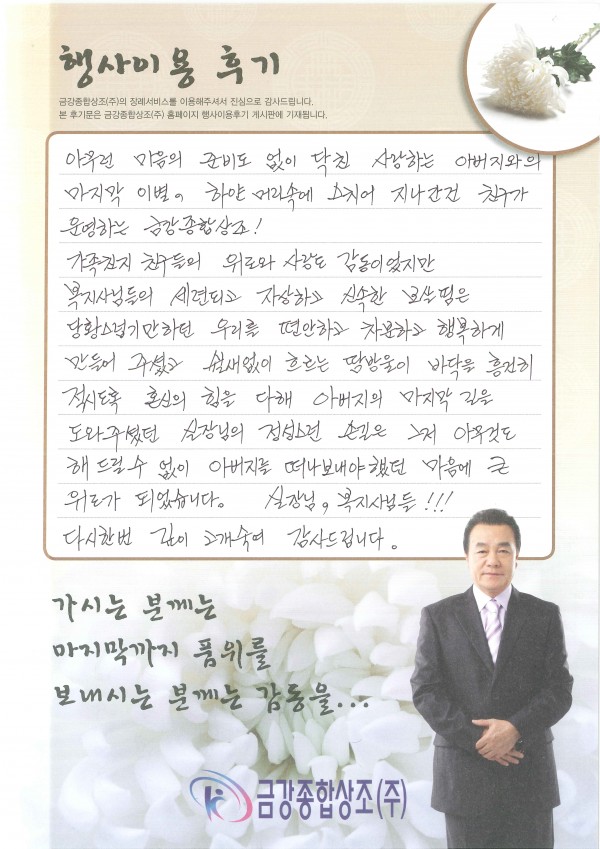 행사이용 후기
금강종합상조(주)의 장례서비스를 이용해주셔서 진심으로 감사드립니다.
본 후기문은 금강종합상조(주) 홈페이지 행사이용후기 게시판에 기재됩니다.
아무런 마음의 준비도 없이 닥친 사랑하는 아버지와의
마지막 이별, 하얀 머리속에 스치어 지나간건 친구가
운영하는 금강종합상조!
가족친지 친구들의 위로와 사랑도 감동이었지만
복지사님들의 세련되고 자상하고 신속한 보살핌은
당황스럽기만하던 우리를 편안하고 차분하고 행복하게
만들어 주셨고 쉴새없이 흐르는 땀방울이 바닥을 흥건히
적시도록 혼신의 힘을 다해 아버지의 마지막 길을
도와주셨던 실장님의 정성스런 손길은 그저 아무것도
해 드릴수 없이 아버지를 떠나보내야 했던 마음에 큰
위로가 되었습니다. 실장님, 복지사님들!!!
다시한번 깊이 고개숙여 감사드립니다.
가시는 분께는
마지막까지 품위를
보내시는 분께는 감동을...
금강종합상조(주)